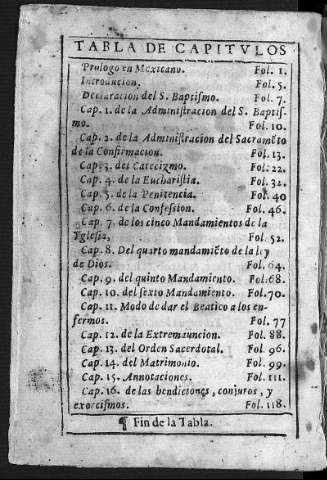 TABLA DE CAPITVLOS
Prologo en Mexicano. Fol. 1.
Introducion. Fol. 5.
Declaracion del S. Baptiſmo. Fol. 7.
Cap. 1. de la Adminiſtracion del S. Baptiſ-
mo. Fol. 10.
Cap. 2. de la Adminiſtracion del Sacramēto
de la Confirmacion. Fol. 13.
Cap. 3. del Catecizmo. Fol. 22.
Cap. 4. de la Euchariſtia. Fol. 32.
Cap. 5. de la Penitencia. Fol. 40
Cap. 6. de la Confeſsion. Fol. 46.
Cap. 7. de los cinco Mandamientos de la
Ygleſia, Fol. 52.
Cap. 8. Del quarto mandamiēto de la ley
de Dios. Fol. 64.
Cap. 9. del quinto Mandamiento. Fol. 68.
Cap. 10. del ſexto Mandamiento. Fol. 70.
Cap. 11. Modo de dar el Beatico a los en-
fermos. Fol. 77
Cap. 12. de la Extremauncion. Fol. 88.
Cap. 13. del Orden Sacerdotal. Fol. 96.
Cap. 14. del Matrimonio. Fol. 99.
Cap. 15. Annotaciones. Fol. 111.
Cap. 16. de las bendiciones, conjuros, y
exorciſmos. Fol. 118.
¶ Fin de la Tabla.